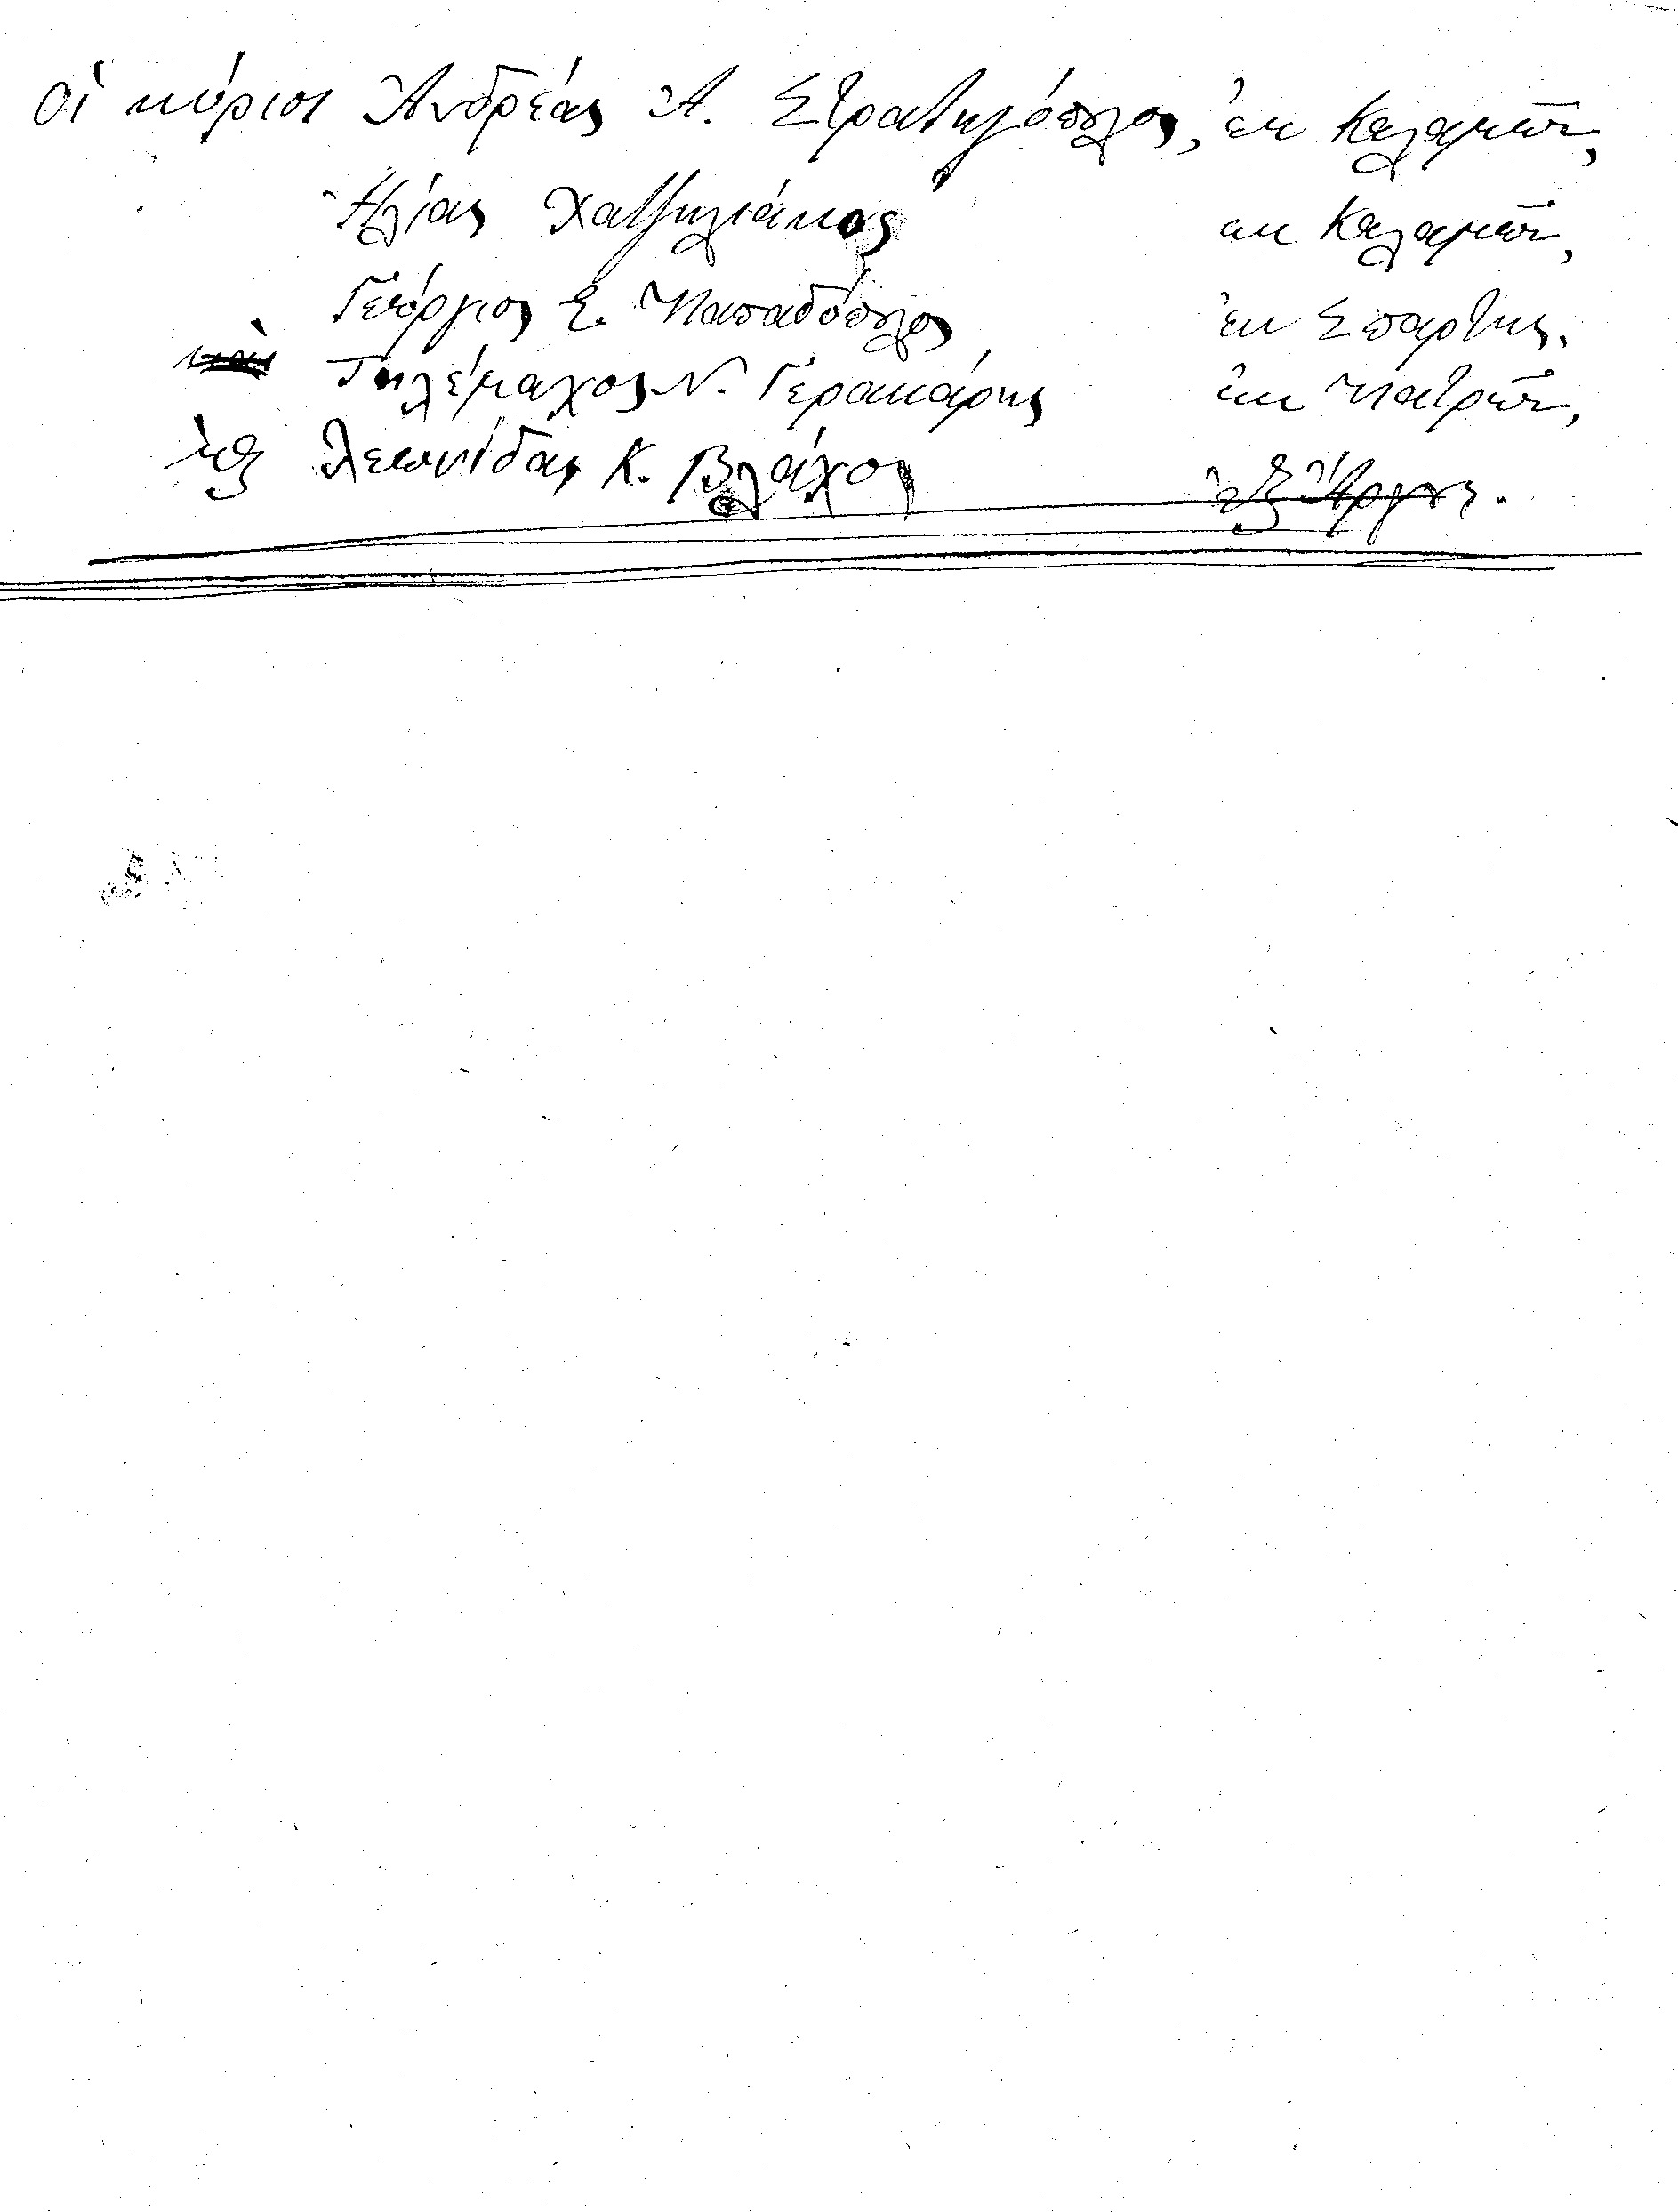 Οἱ κύριοι Ἀνδρέας Ἀ. Στρατηγόπουλος, ἐκ Καλαμῶν,
Ἠλίας Χατζηλιάκος ἐκ Καλαμῶν,
Γεώργιος Σ. Παπαδόπουλος ἐκ Σπάρτης,
καὶ Τηλέμαχος Ν. Γερακάρης ἐκ Πατρῶν,
καὶ Λεωνίδας Κ. Βλάχος ἐξ Ἄργους.